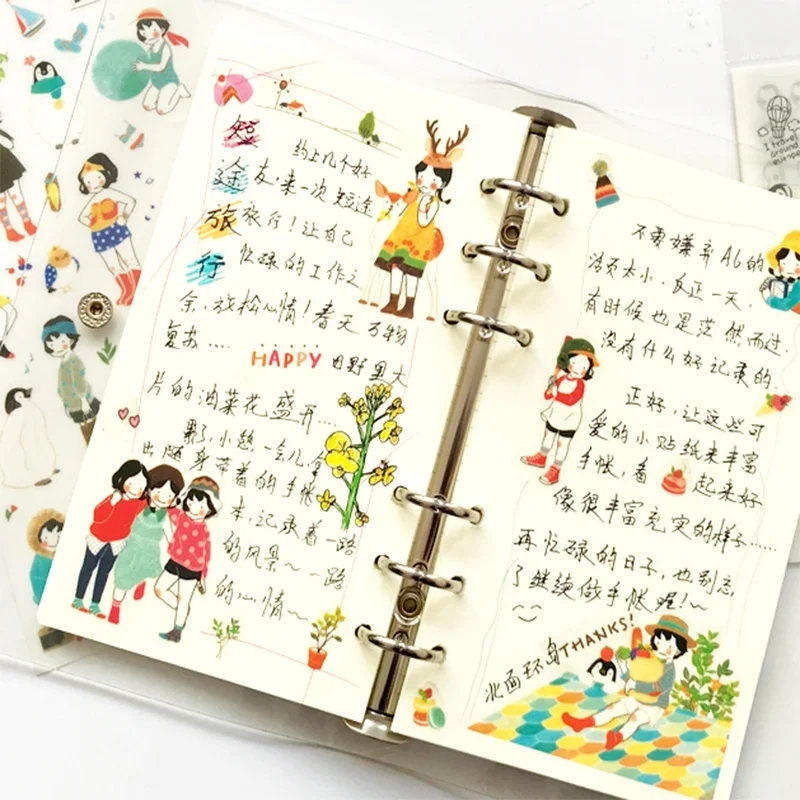 短途旅行
约上几个好
友，来一次短途
旅行！让自己
忙碌的工作之
余，放松心情！春天万物
复苏....
HAPPY 田野里大
片的油菜花盛开...
累了，小憩一会儿，拿
出随身带着的手帐
本，记录着一路
的风景～一路
的心情～
不要嫌弃A6的
活页太小，反正一天，
有时候也是茫然而过，
没有什么好记录的．
正好，让这些可
爱的小贴纸来丰富
手帐，看起来好
像很丰富充实的样子......
再忙碌的日子，也别忘
了继续做手帐喔！～
THANKS!
北面环岛
I travel
around
europe